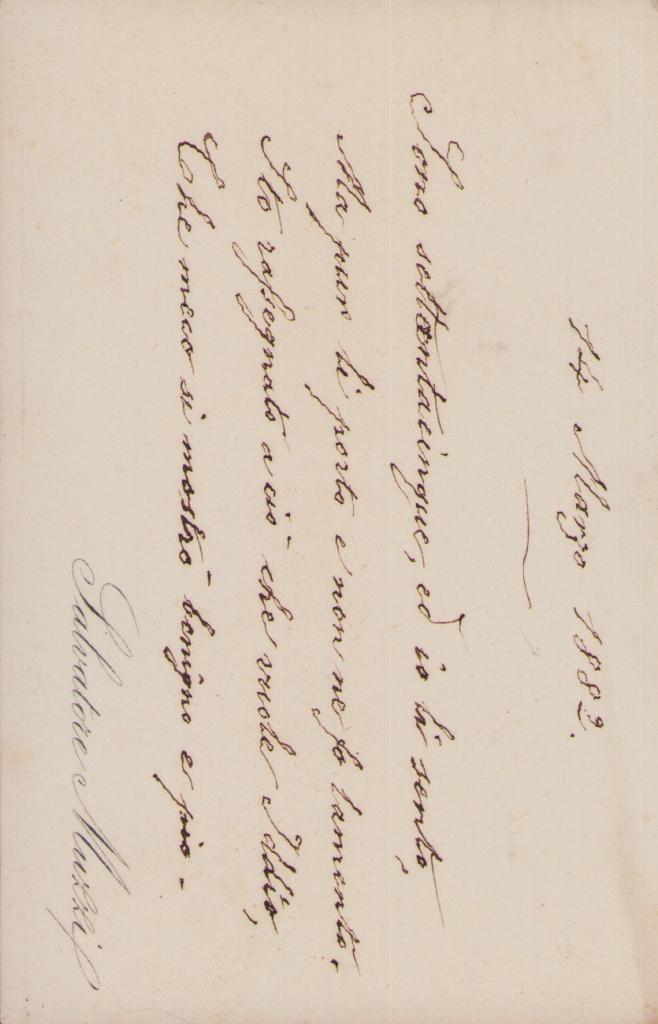 14 Marzo 1882.
Sono settantacinque, ed io li sento,
Ma pur li porto e non ne fo lamento.
Sto rassegnato a ciò che vuole Iddio,
Che meco si mostrò benigno e pio -
Salvatore Muzzi